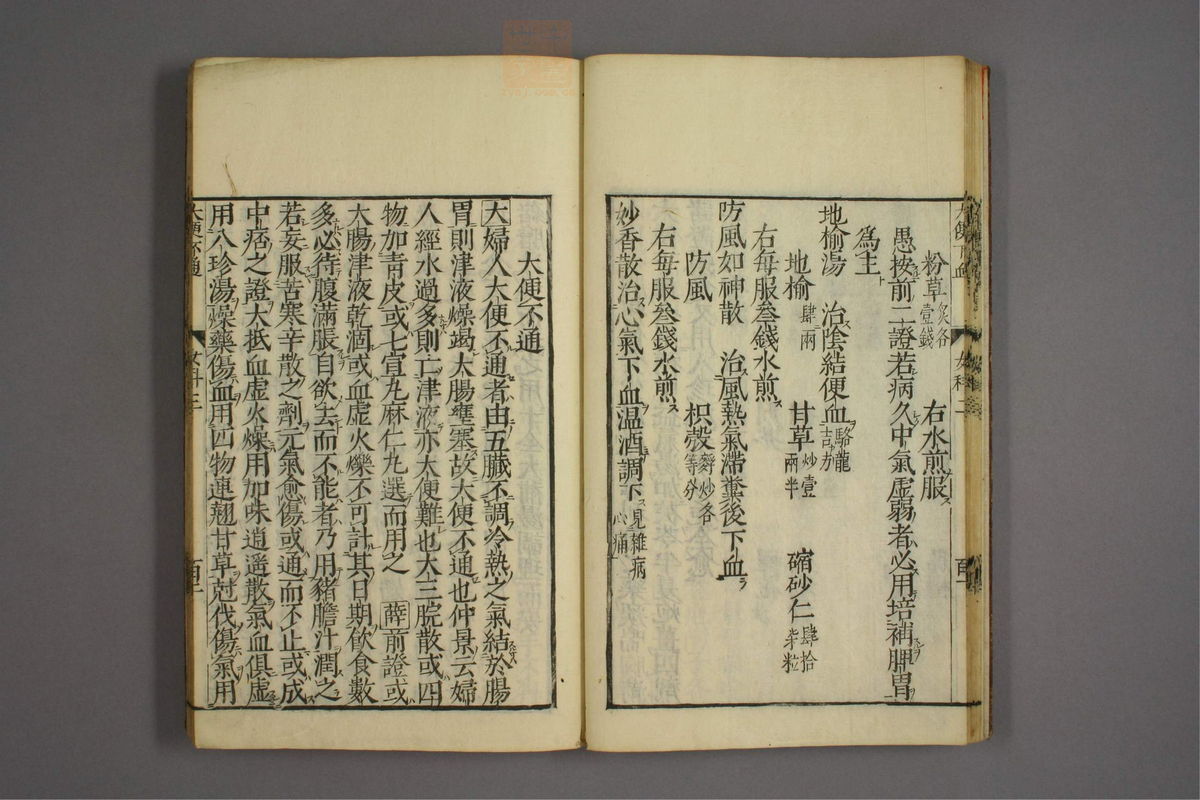 粉草炙各壹錢 右水煎服
愚按前二證若病久中氣虛弱者必用培補脾胃
為主
地榆湯 治陰結便血駱龍吉方
地榆肆兩 甘草炒壹兩半 縮砂仁肆拾柒粒
右每服叁錢水煎
防風如神散 治風熱氣滯糞後下血
防風 枳殼麩炒各等分
右每服叁錢水煎
妙香散治心氣下血温酒調下見雜病心痛
大便不通
大婦人大便不通者由五臟不調冷熱之氣結於腸
胃則津液燥竭大腸壅塞故大便不通也仲景云婦
人經水過多則亡津液亦大便難也大三脘散或四
物加青皮或七宣丸麻仁丸選而用之 薛前證或
大腸津液乾涸或血虛火爍不可計其日期飲食數
多必待腹滿脹自欲去而不能者乃用豬膽汁潤之
若妄服苦寒辛散之劑元氣愈傷或通而不止或成
中痞之證大抵血虛火燥用加味逍遥散氣血俱虛
用八珍湯燥藥傷血用四物連翹甘草尅伐傷氣用